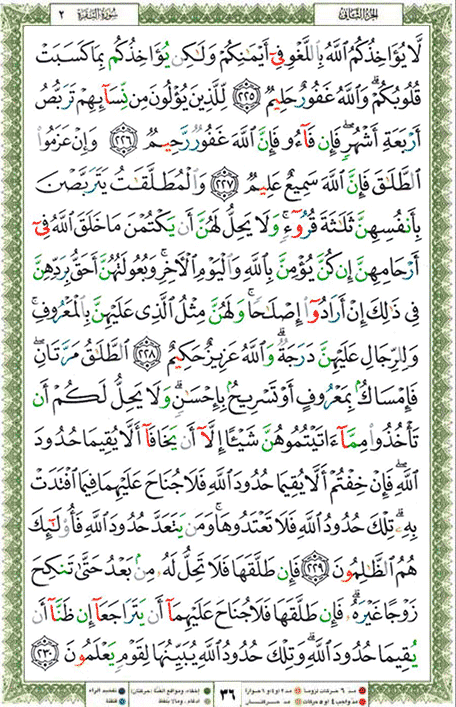 الجزء الثاني
سورة البقرة ٢
لَّا يُؤَاخِذُكُمُ اللَّهُ بِاللَّغْوِ فِىٓ أَيْمَٰنِكُمْ وَلَٰكِن يُؤَاخِذُكُم بِمَا كَسَبَتْ
قُلُوبُكُمْ ۗ وَاللَّهُ غَفُورٌ حَلِيمٌ ٢٢٥ لِّلَّذِينَ يُؤْلُونَ مِن نِّسَآئِهِمْ تَرَبُّصُ
أَرْبَعَةِ أَشْهُرٍ ۖ فَإِن فَآءُو فَإِنَّ اللَّهَ غَفُورٌ رَّحِيمٌ ٢٢٦ وَإِنْ عَزَمُوا
الطَّلَٰقَ فَإِنَّ اللَّهَ سَمِيعٌ عَلِيمٌ ٢٢٧ وَالْمُطَلَّقَٰتُ يَتَرَبَّصْنَ
بِأَنفُسِهِنَّ ثَلَٰثَةَ قُرُوٓءٍ ۚ وَلَا يَحِلُّ لَهُنَّ أَن يَكْتُمْنَ مَا خَلَقَ اللَّهُ فِىٓ
أَرْحَامِهِنَّ إِن كُنَّ يُؤْمِنَّ بِاللَّهِ وَالْيَوْمِ الْءَاخِرِ ۚ وَبُعُولَتُهُنَّ أَحَقُّ بِرَدِّهِنَّ
فِى ذَٰلِكَ إِنْ أَرَادُوٓا إِصْلَٰحًا ۚ وَلَهُنَّ مِثْلُ الَّذِى عَلَيْهِنَّ بِالْمَعْرُوفِ ۚ
وَلِلرِّجَالِ عَلَيْهِنَّ دَرَجَةٌ ۗ وَاللَّهُ عَزِيزٌ حَكِيمٌ ٢٢٨ الطَّلَٰقُ مَرَّتَانِ ۖ
فَإِمْسَاكٌۢ بِمَعْرُوفٍ أَوْ تَسْرِيحٌۢ بِإِحْسَٰنٍ ۗ وَلَا يَحِلُّ لَكُمْ أَن
تَأْخُذُوا مِمَّآ ءَاتَيْتُمُوهُنَّ شَيْـًٔا إِلَّآ أَن يَخَافَآ أَلَّا يُقِيمَا حُدُودَ
اللَّهِ ۖ فَإِنْ خِفْتُمْ أَلَّا يُقِيمَا حُدُودَ اللَّهِ فَلَا جُنَاحَ عَلَيْهِمَا فِيمَا افْتَدَتْ
بِهِۦ ۗ تِلْكَ حُدُودُ اللَّهِ فَلَا تَعْتَدُوهَا ۚ وَمَن يَتَعَدَّ حُدُودَ اللَّهِ فَأُولَٰٓئِكَ
هُمُ الظَّٰلِمُونَ ٢٢٩ فَإِن طَلَّقَهَا فَلَا تَحِلُّ لَهُۥ مِنۢ بَعْدُ حَتَّىٰ تَنكِحَ
زَوْجًا غَيْرَهُۥ ۗ فَإِن طَلَّقَهَا فَلَا جُنَاحَ عَلَيْهِمَآ أَن يَتَرَاجَعَآ إِن ظَنَّآ أَن
يُقِيمَا حُدُودَ اللَّهِ ۗ وَتِلْكَ حُدُودُ اللَّهِ يُبَيِّنُهَا لِقَوْمٍ يَعْلَمُونَ ٢٣٠
مد ٦ حركات لزوماً مد ٢ او ٤ او ٦ جوازاً
مد واجب ٤ او ٥ حركات مد حركتان
٣٦
إخفاء، ومواقع الغنّة (حركتان) تفخيم الراء
ادغام، وما لا يلفظ قلقلة